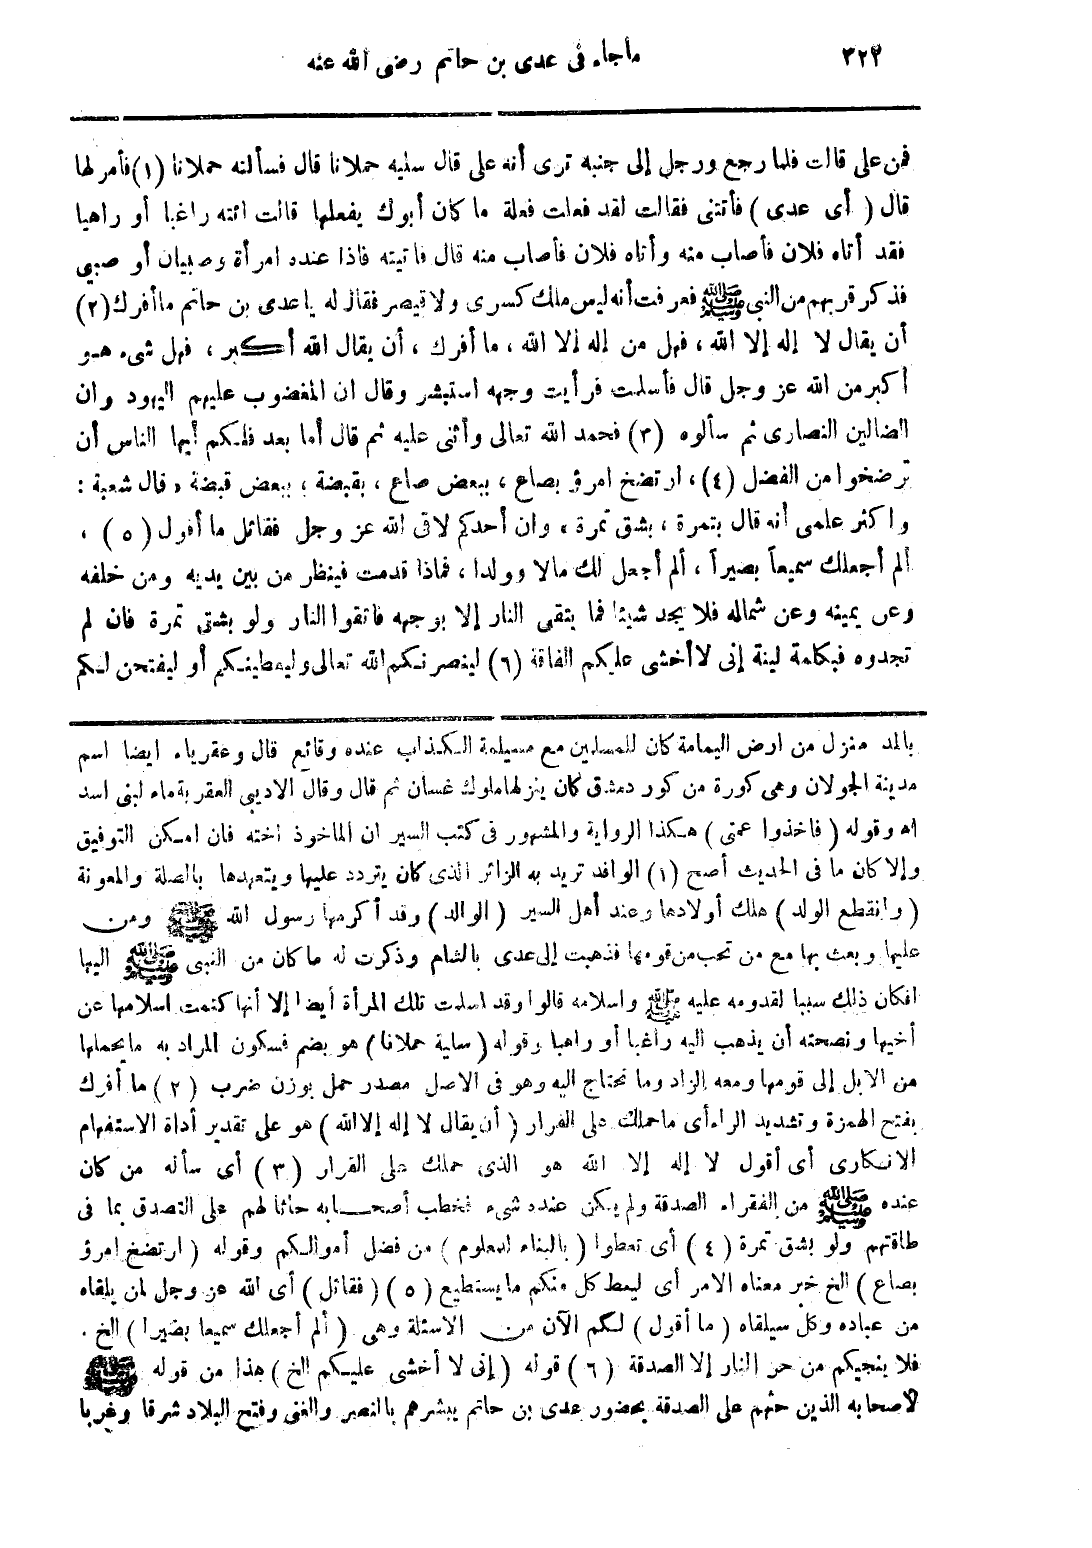 ٣٢٤ ماجاء فى عدى بن حاتم رضى الله عنه
فمن على قالت فلما رجع ورجل إلى جنبه ترى أنه على قال سليه حملانا قال فسألته حملانا (١) فأمر لها
قال ( أى عدى ) فأتتنى فقالت لقد فعلت فعلة ما كان أبوك يفعلها قالت ائته راغبا أو راهبا
فقد أتاه فلان فأصاب منه وأتاه فلان فأصاب منه قال فاتيته فاذا عنده امرأة وصبيان أو صبى
فذكر قربهم من النبى ﷺ فعرفت أنه ليس ملك كسرى ولا قيصر فقال له يا عدى بن حاتم ما أفرك (٢)
أن يقال لا إله إلا الله ، فهل من إله إلا الله ، ما أفرك ، أن يقال الله أكبر ، فهل شىء هو
أكبر من الله عز وجل قال فأسلمت فرأيت وجهه استبشر وقال ان المغضوب عليهم اليهود وان
الضالين النصارى ثم سألوه (٣) فحمد الله تعالى وأثنى عليه ثم قال أما بعد فلكم أيها الناس أن
ترضخوا من الفضل (٤)، ارتضخ امرؤ بصاع ، ببعض صاع ، بقبضة ، ببعض قبضة ، قال شعبة :
واكثر علمى أنه قال بتمرة ، بشق تمرة ، وان أحدكم لاقى الله عز وجل فقائل ما أقول ( ٥ ) ،
ألم أجعلك سميعاً بصيراً ، ألم أجعل لك مالا وولدا ، فماذا قدمت فينظر من بين يديه ومن خلفه
وعن يمينه وعن شماله فلا يجد شيئا فما يتقى النار إلا بوجهه فاتقوا النار ولو بشق تمرة فان لم
تجدوه فبكلمة لينة إنى لا أخشى عليكم الفاقة (٦) لينصرنكم الله تعالى وليعطينكم أو ليفتحن لكم
بالمد منزل من ارض اليمامة كان للمسلمين مع مسيلمة الكذاب عنده وقائع قال وعقرباء ايضا اسم
مدينة الجولان وهى كورة من كور دمشق كان ينزلها ملوك غسان ثم قال وقال الاديبى العقربة ماء لبنى اسد
اه وقوله ( فاخذوا عمتى ) هكذا الرواية والمشهور فى كتب السير ان الماخوذ اخته فان امكن التوفيق
وإلا كان ما فى الحديث أصح (١) الوافد تريد به الزائر الذى كان يتردد عليها ويتعهدها بالصلة والمعونة
( وانقطع الولد ) هلك أولادها وعند أهل السير ( الوالد ) وقد أكرمها رسول الله ﷺ ومن
عليها وبعث بها مع من تحب من قومها فذهبت إلى عدى بالشام وذكرت له ما كان من النبى ﷺ اليها
افكان ذلك سببا لقدومه عليه ﷺ واسلامه قالوا وقد اسلمت تلك المرأة أيضا إلا أنها كتمت اسلامها عن
أخيها ونصحته أن يذهب اليه راغبا أو راهبا وقوله ( سلية حملانا ) هو بضم فسكون المراد به ما يحملها
من الابل إلى قومها ومعه الزاد وما تحتاج اليه وهو فى الاصل مصدر حمل بوزن ضرب ( ٢ ) ما أفرك
بفتح الهمزة وتشديد الراء أى ما حملك على الفرار ( أن يقال لا إله إلا الله ) هو على تقدير أداة الاستفهام
الانكارى أى أقول لا إله إلا الله هو الذى حملك على الفرار ( ٣ ) أى سأله من كان
عنده ﷺ من الفقراء الصدقة ولم يكن عنده شىء فخطب أصحابه حاثا لهم على التصدق بما فى
طاقتهم ولو بشق تمرة ( ٤ ) أى تعطوا ( بالبناء للمعلوم ) من فضل أموالكم وقوله ( ارتضخ امرؤ
بصاع ) الخ خبر معناه الامر أى ليعط كل منكم ما يستطيع ( ٥ ) ( فقائل ) أى الله عز وجل لمن يلقاه
من عباده وكل سيلقاه ( ما أقول ) لكم الآن من الاسئلة وهى ( ألم أجعلك سميعا بصيرا ) الخ .
فلا ينجيكم من حر النار إلا الصدقة ( ٦ ) قوله ( إنى لا أخشى عليكم الخ ) هذا من قوله ﷺ
لاصحابه الذين حثهم على الصدقة بحضور عدى بن حاتم يبشرهم بالنصر والغنى وفتح البلاد شرقا وغربا